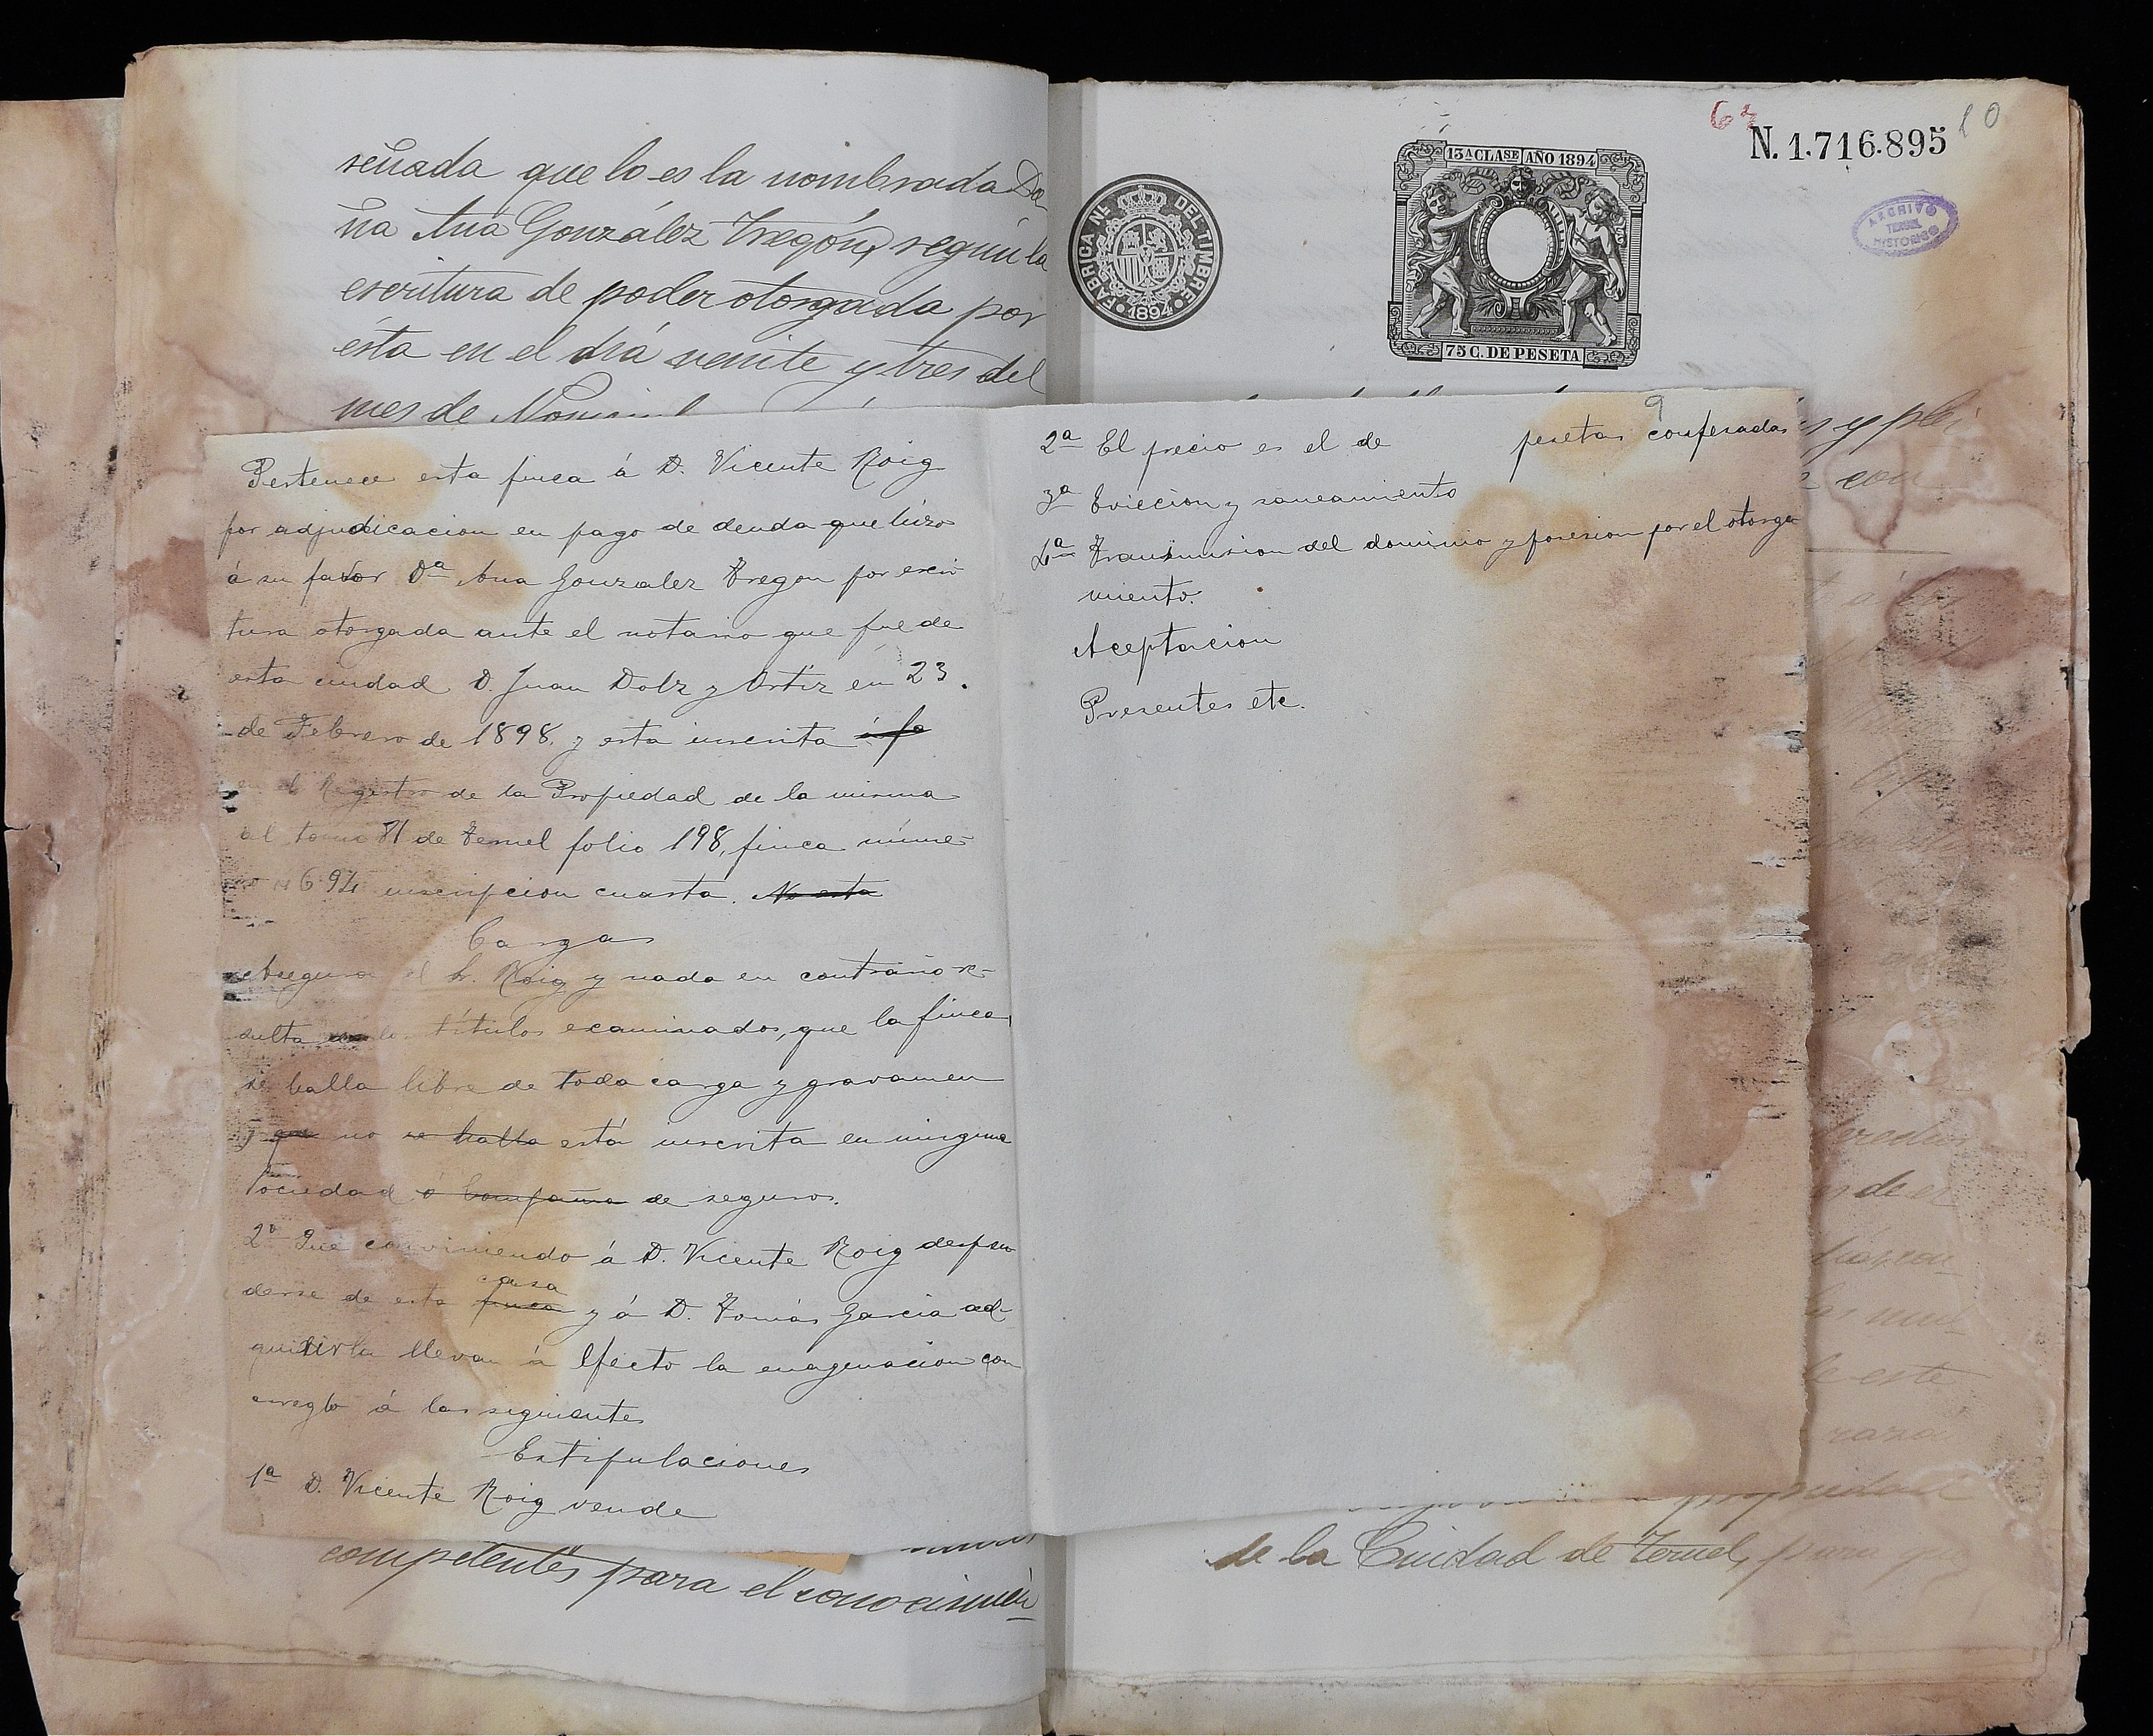 señada que lo es la nombrada Do-
ña Ana González Tregón, según la
escritura de poder otorgada por
ésta en el día veinte y tres del
mes de
Pertenece esta finca á D. Vicente Roig
por adjudicacion en pago de deuda que hizo
á su favor Dª Ana Gonzalez Tregon por escri
tura otorgada ante el notario que fue de
esta ciudad D. Juan Dolz y Ortiz en 23.
de Febrero de 1898. y esta inscrita á fo
en el Registro de la Propiedad de la misma
al tomo 81 de Teruel folio 198, finca núme-
inscripcion cuarta. No esta
Cargas
Asegura el Sr. Roig y nada en contrario re-
sulta los títulos examinados, que la finca
se halla libre de toda carga y gravamen
y que no se halla está inscrita en ninguna
Sociedad ó Compañia de seguros.
2º Que conviniendo á D. Vicente Roig despren
casa
derse de esta finca y á D. Tomás Garcia ad-
quirirla llevan á efecto la enagenacion con
arreglo á las siguientes
Estipulaciones
1ª D. Vicente Roig vende
competentes para el conocimien-
67
10
N. 1.716.895
FABRICA NL. DEL TIMBRE
1894
13A CLASE AÑO 1894
75 C. DE PESETA
ARCHIVO
TERUEL
HISTORICO
9
2ª El precio es el de pesetas confesadas
3ª Eviccion y saneamiento
4ª Transmision del dominio y posesion por el otorga
miento.
Aceptacion
Presentes etc.
y ple-
con
de este
propiedad
de la Ciudad de Teruel, para